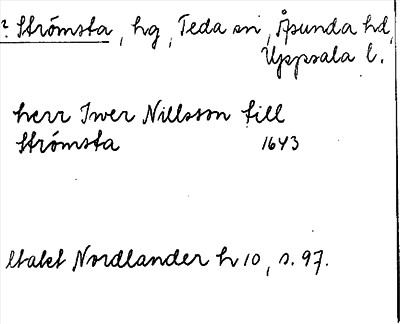 ? Strömsta, hg, Teda sn, Åsunda hd,
Uppsala l.
herr Iwer Nillsson till
Strömsta 1643
Utakt Nordlander h 10, s. 97.